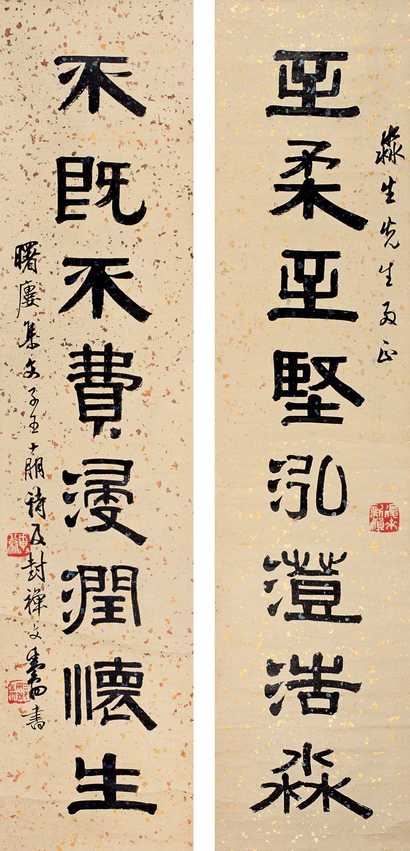 淼生先生教正
至柔至堅泓澄浩淼
不既不費浸潤懷生
曙廔集文子王十朋詩及封禪文
書